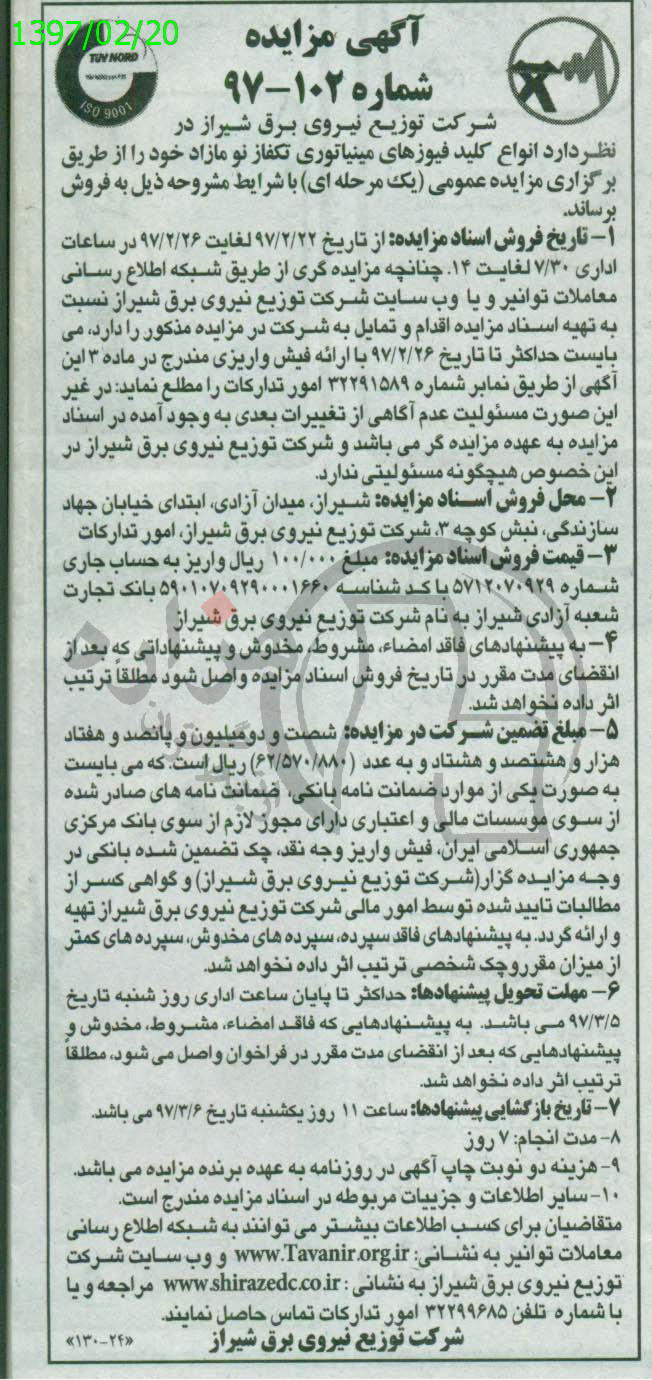 1397/02/20
آگهی مزایده
شماره ۱۰۲-۹۷
TÜV NORD
ISO 9001
شرکت توزیع نیروی برق شیراز در
نظر دارد انواع کلید فیوزهای مینیاتوری تکفاز نو مازاد خود را از طریق
برگزاری مزایده عمومی (یک مرحله ای) با شرایط مشروحه ذیل به فروش
برساند.
۱- تاریخ فروش اسناد مزایده: از تاریخ ۹۷/۲/۲۲ لغایت ۹۷/۲/۲۶ در ساعات
اداری ۷/۳۰ لغایت ۱۴. چنانچه مزایده گری از طریق شبکه اطلاع رسانی
معاملات توانیر و یا وب سایت شرکت توزیع نیروی برق شیراز نسبت
به تهیه اسناد مزایده اقدام و تمایل به شرکت در مزایده مذکور را دارد، می
بایست حداکثر تا تاریخ ۹۷/۲/۲۶ با ارائه فیش واریزی مندرج در ماده ۳ این
آگهی از طریق نمابر شماره ۳۲۲۹۱۵۸۹ امور تدارکات را مطلع نماید: در غیر
این صورت مسئولیت عدم آگاهی از تغییرات بعدی به وجود آمده در اسناد
مزایده به عهده مزایده گر می باشد و شرکت توزیع نیروی برق شیراز در
این خصوص هیچگونه مسئولیتی ندارد.
۲- محل فروش اسناد مزایده: شیراز، میدان آزادی، ابتدای خیابان جهاد
سازندگی، نبش کوچه ۳، شرکت توزیع نیروی برق شیراز، امور تدارکات
۳- قیمت فروش اسناد مزایده: مبلغ ۱۰۰/۰۰۰ ریال واریز به حساب جاری
شماره ۵۷۱۲۰۷۰۹۲۹ با کد شناسه ۵۹۰۱۰۷۰۹۲۹۰۰۰۱۶۶۰ بانک تجارت
شعبه آزادی شیراز به نام شرکت توزیع نیروی برق شیراز
۴- به پیشنهادهای فاقد امضاء، مشروط، مخدوش و پیشنهاداتی که بعد از
انقضای مدت مقرر در تاریخ فروش اسناد مزایده واصل شود مطلقاً ترتیب
اثر داده نخواهد شد.
۵- مبلغ تضمین شرکت در مزایده: شصت و دومیلیون و پانصد و هفتاد
هزار و هشتصد و هشتاد و به عدد (۶۲/۵۷۰/۸۸۰) ریال است. که می بایست
به صورت یکی از موارد ضمانت نامه بانکی، ضمانت نامه های صادر شده
از سوی موسسات مالی و اعتباری دارای مجوز لازم از سوی بانک مرکزی
جمهوری اسلامی ایران، فیش واریز وجه نقد، چک تضمین شده بانکی در
وجه مزایده گزار(شرکت توزیع نیروی برق شیراز) و گواهی کسر از
مطالبات تایید شده توسط امور مالی شرکت توزیع نیروی برق شیراز تهیه
و ارائه گردد. به پیشنهادهای فاقد سپرده، سپرده های مخدوش، سپرده های کمتر
از میزان مقرروچک شخصی ترتیب اثر داده نخواهد شد.
۶- مهلت تحویل پیشنهادها: حداکثر تا پایان ساعت اداری روز شنبه تاریخ
۹۷/۳/۵ می باشد. به پیشنهادهایی که فاقد امضاء، مشروط، مخدوش و
پیشنهادهایی که بعد از انقضای مدت مقرر در فراخوان واصل می شود، مطلقاً
ترتیب اثر داده نخواهد شد.
۷- تاریخ بازگشایی پیشنهادها: ساعت ۱۱ روز یکشنبه تاریخ ۹۷/۳/۶ می باشد.
۸- مدت انجام: ۷ روز
۹- هزینه دو نوبت چاپ آگهی در روزنامه به عهده برنده مزایده می باشد.
۱۰- سایر اطلاعات و جزییات مربوطه در اسناد مزایده مندرج است.
متقاضیان برای کسب اطلاعات بیشتر می توانند به شبکه اطلاع رسانی
معاملات توانیر به نشانی: www.Tavanir.org.ir و وب سایت شرکت
توزیع نیروی برق شیراز به نشانی : www.shirazedc.co.ir مراجعه و یا
با شماره تلفن ۳۲۲۹۹۶۸۵ امور تدارکات تماس حاصل نمایند.
شرکت توزیع نیروی برق شیراز
«۱۳۰-۲۴»